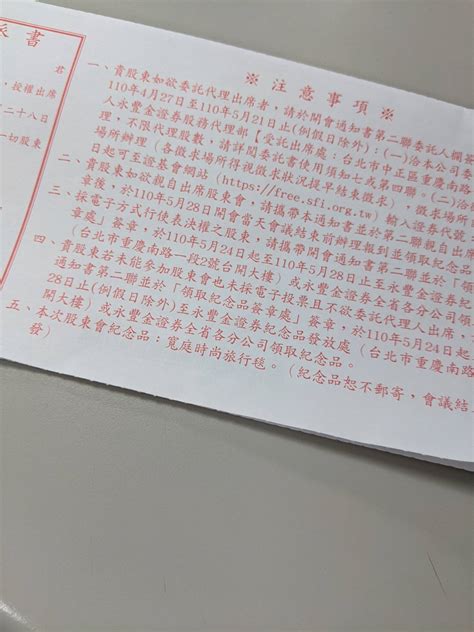 派書
君
授權出席
二十八日
一切股東
※ 注 意 事 項 ※
一、貴股東如欲委託代理出席者，請於開會通知書第二聯委託人欄
110年4月27日至110年5月21日止(例假日除外)：(一)洽本公司委
人永豐金證券股務代理部【受託出席處：台北市中正區重慶南
理，不限代理股數，請詳閱委託書使用須知七或第四聯。(二)洽
場所辦理（各徵求場所得視徵求狀況提早結束徵求），徵求場所
日起可至證基會網站 (https://free.sfi.org.tw) 輸入證券代號
二、貴股東如欲親自出席股東會，請攜帶本通知書並於第二聯親自出席
章後，於110年5月28日開會當天會議結束前辦理報到並領取紀念
三、採電子方式行使表決權之股東，請攜帶開會通知書第二聯並於「領
章處」簽章，於110年5月24日起至110年5月28日止至永豐金證券
(台北市重慶南路一段2號古開大樓）或永豐金證券全省各分公
四、貴股東若未能參加股東會也未採電子投票且不欲委託代理人出席，
通知書第二聯並於「領取紀念品簽章處」簽章，於110年5月24日起
28日止(例假日除外)至永豐金證券紀念品發放處（台北市重慶南路
開大樓）或永豐金證券全省各分公司領取紀念品。
五、本次股東會紀念品：寬庭時尚旅行毯。（紀念品恕不郵寄，會議結
發）